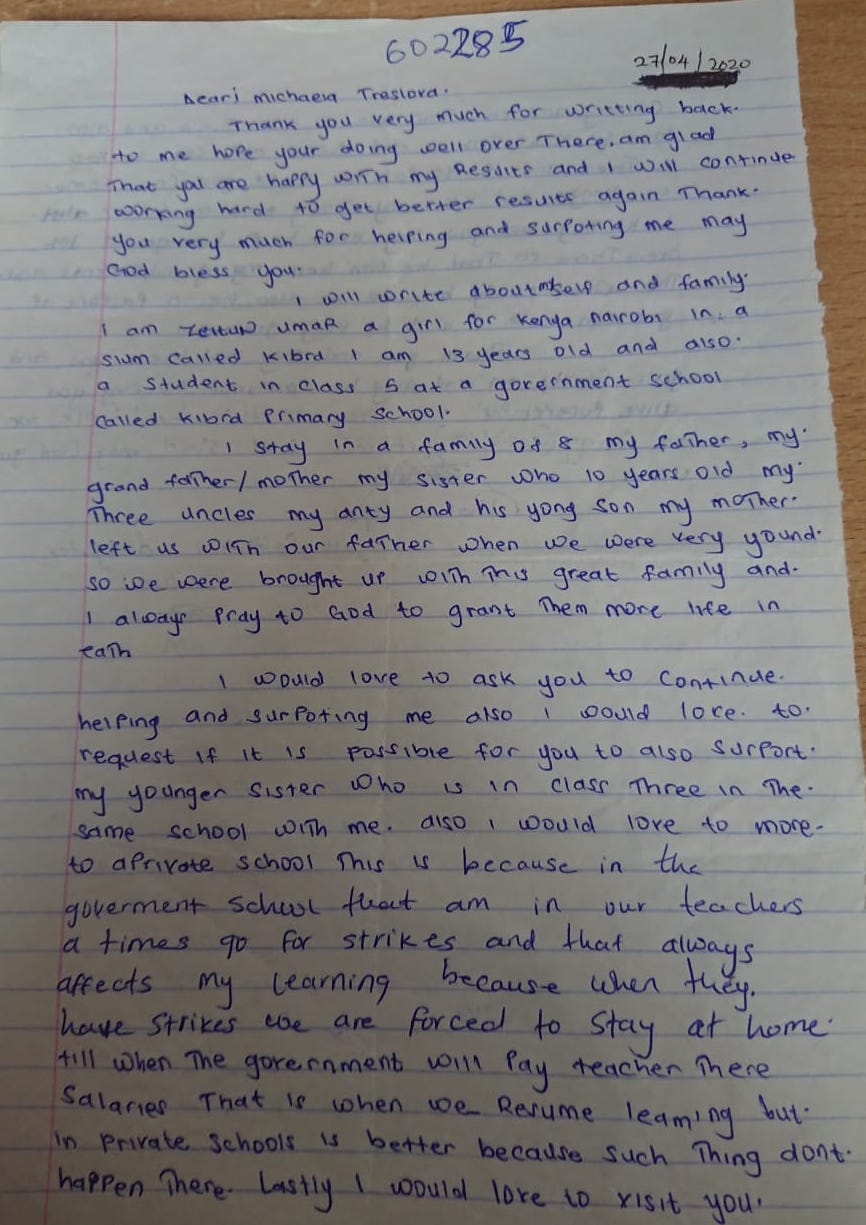 602285
27/04/2020
Dearj michaela Treslova.
Thank you very much for writting back.
to me hope your doing well over There. am glad
That you are happy with my Results and I will continue
working hard to get better results again Thank.
you very much for helping and surpoting me may
God bless you.
I will write about myself and family.
I am ZEITUN UMAR a girl for Kenya nairobi in a
slum called Kibra I am 13 years old and also.
a student in class 5 at a government school
called Kibra Primary School.
I stay in a family of 8 my father, my.
grand father/mother my sister who 10 years old my.
Three uncles my anty and his yong son my mother.
left us with our father when we were very yound.
so we were brought up with This great family and.
I always Pray to God to grant Them more life in
eath
I would love to ask you to continue.
helping and surpoting me also I would love. to.
request if it is possible for you to also surport.
my younger sister who is in class Three in The.
same school with me. also I would love to more-
to aprivate school This is because in the
goverment school that am in our teachers
a times go for strikes and that always
affects my learning because when they.
have strikes we are forced to stay at home.
till when The government will Pay teacher There
salaries That is when we Resume learning but.
in private schools is better because such Thing dont.
happen There. Lastly I would love to visit you.